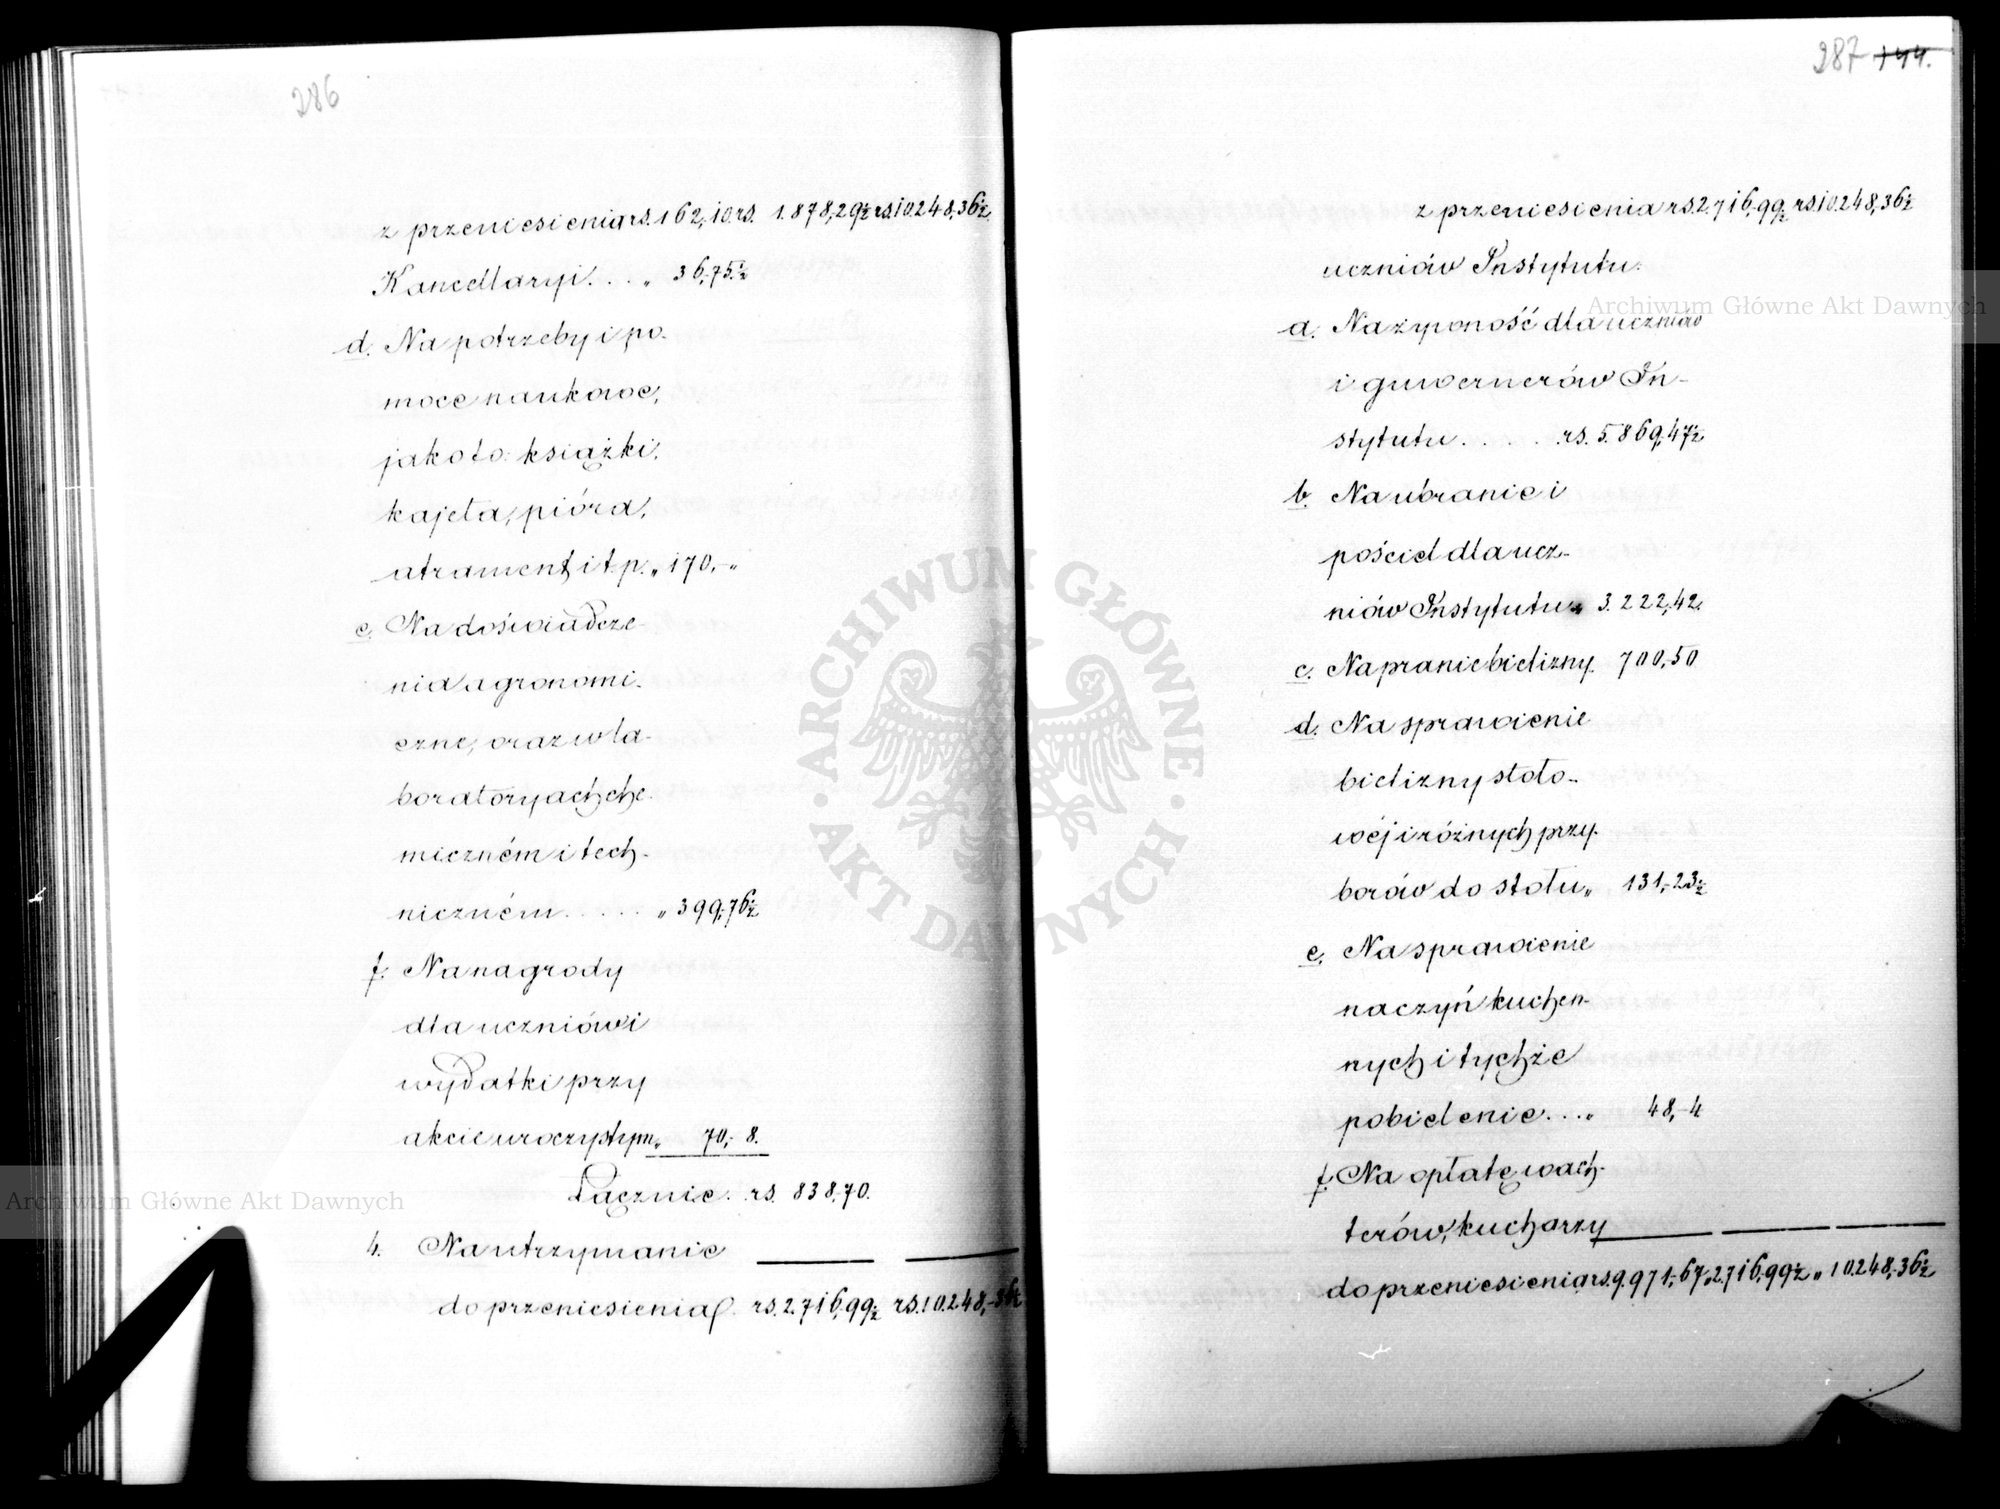 286
z przeniesienia rs. 162,-10. rs. 1.878,-29½ rs. 10.248,-36½
Kancellaryi. . . „ 36,-75½
d. Na potrzeby i po-
moce naukowe,
jako to: książki,
kajeta, pióra,
atrament i t. p. „ 170,-„
e. Na doświadcze-
nia agronomi-
czne, oraz w la-
boratoryach che-
miczném i tech-
niczném . . . . . „ 399,-76½
f. Na nagrody
dla uczniów i
wydatki przy
akcie uroczystym „ 70,- 8.
Łącznie. rs. 838,-70.
4. Na utrzymanie
do przeniesienia rs. 2.716,-99½ rs. 10.248,-36½
287 144.
z przeniesienia rs. 2.716,-99½ rs. 10.248,-36½
uczniów Instytutu.
a. Na żywność dla uczniów
i guwernerów In-
stytutu . . . . . rs. 5.869,-47½
b. Na ubranie i
pościel dla ucz-
niów Instytutu „ 3.222,-42.
c. Na pranie bielizny. 700,-50
d. Na sprawienie
bielizny stoło-
wéj i różnych przy-
borów do stołu „ 131,-23½
e. Na sprawienie
naczyń kuchen-
nych i tychże
pobielenie. . . „ 48,-4
f. Na opłatę wach-
terów, kucharzy
do przeniesienia rs. 9.971,-67 „ 2.716,-99½ „ 10.248,-36½
ARCHIWUM GŁÓWNE · AKT DAWNYCH ·
Archiwum Główne Akt Dawnych
Archiwum Główne Akt Dawnych